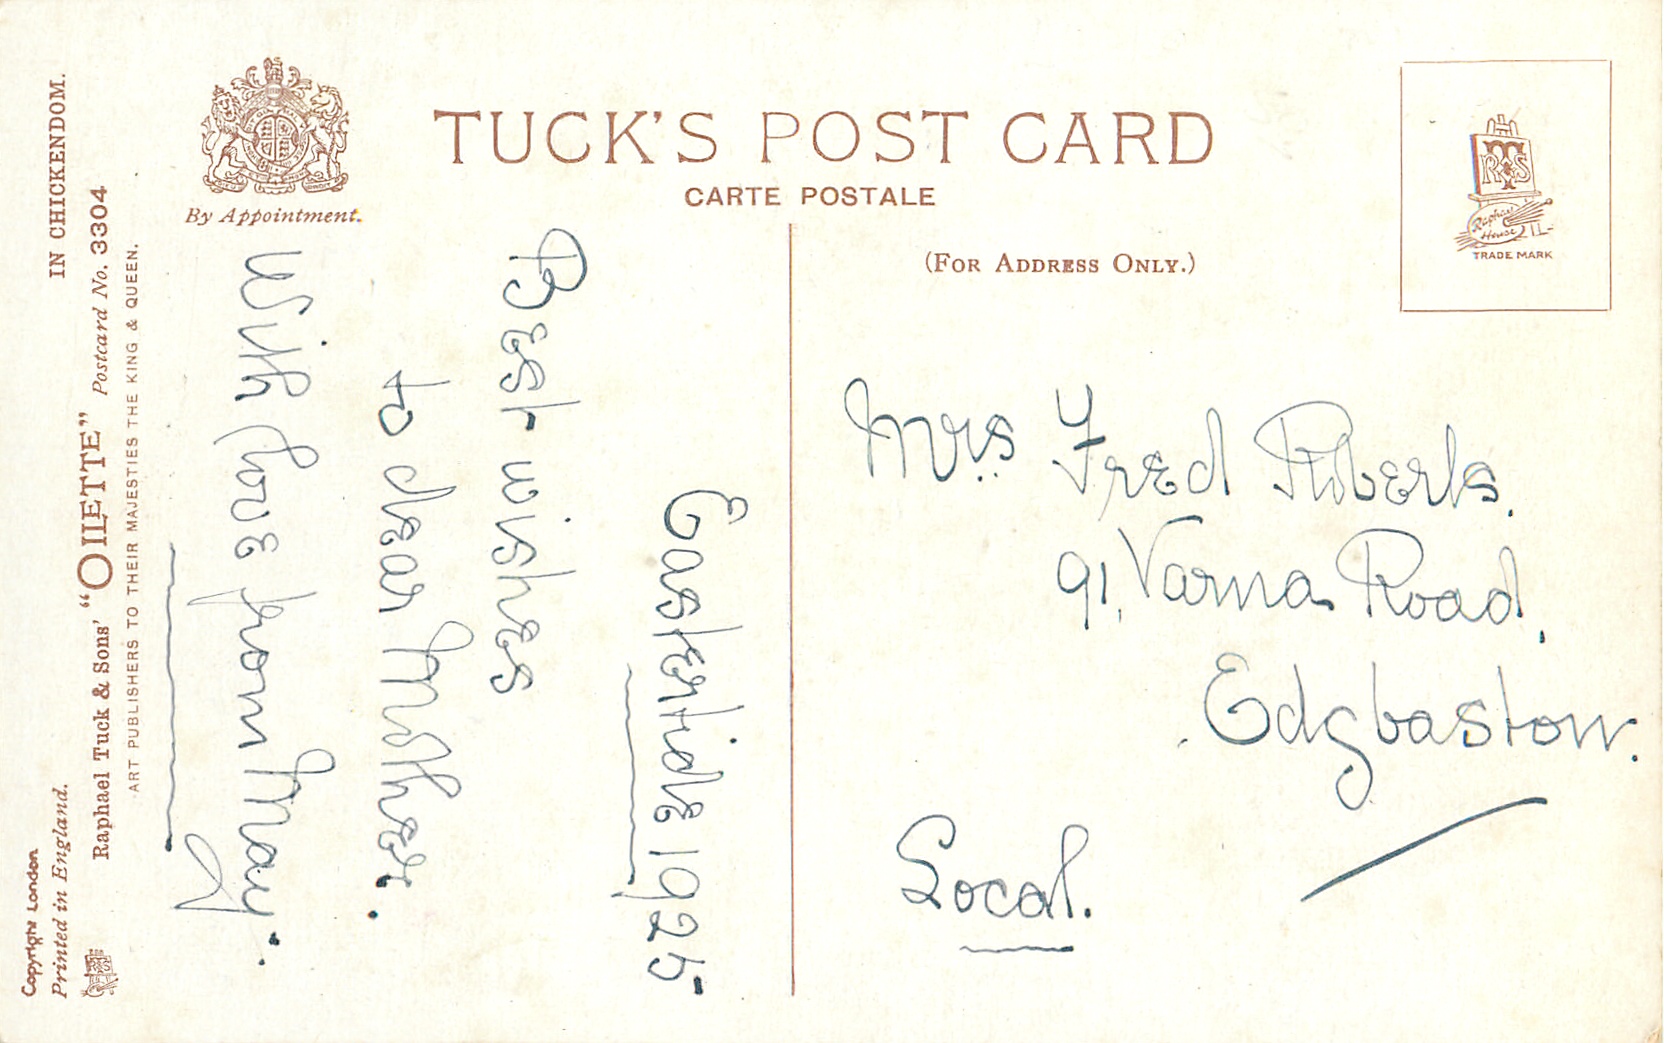 TUCK'S POST CARD
CARTE POSTALE
By Appointment.
(FOR ADDRESS ONLY.)
TRS
Raphael
House
TRADE MARK
IN CHICKENDOM.
Raphael Tuck & Sons' "OILETTE" Postcard No. 3304
ART PUBLISHERS TO THEIR MAJESTIES THE KING & QUEEN.
Copyright London
Printed in England.
Eastertide 1925
Best wishes
to dear Mother.
With love from May.
Mrs Fred Roberts.
91, Varna Road,
Edgbaston.
Local.